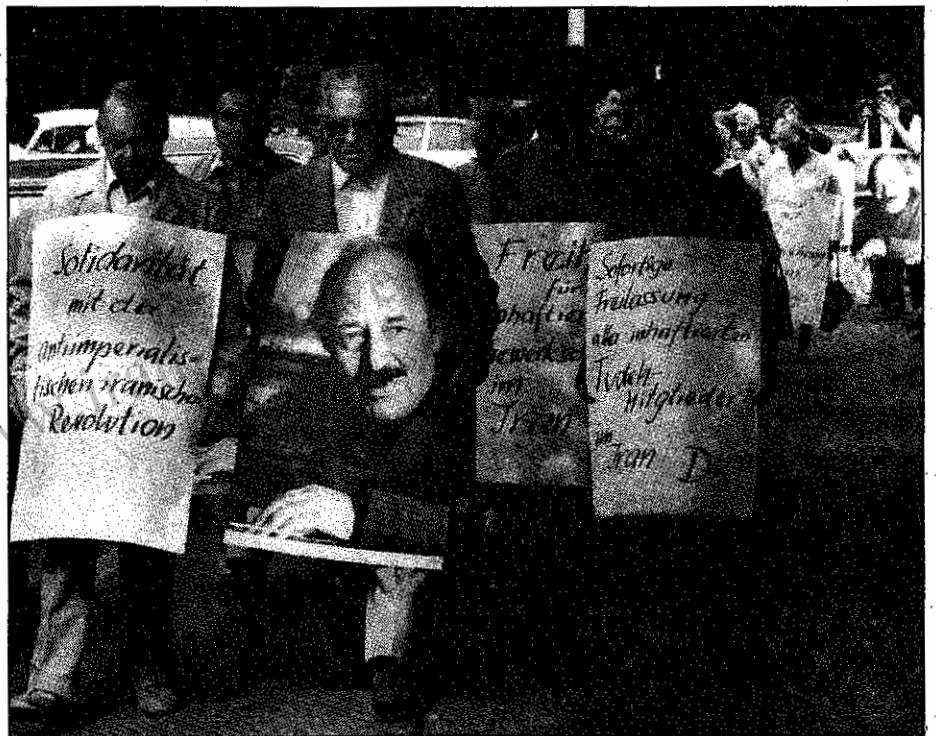 Solidarität
mit der
antiimperialis-
tischen iranischen
Revolution
Freih
für
haftier
ewerksc
im
Iran
Sofortige
Freilassung
aller inhaftierten
Tudeh-
Mitglieder
im
Iran